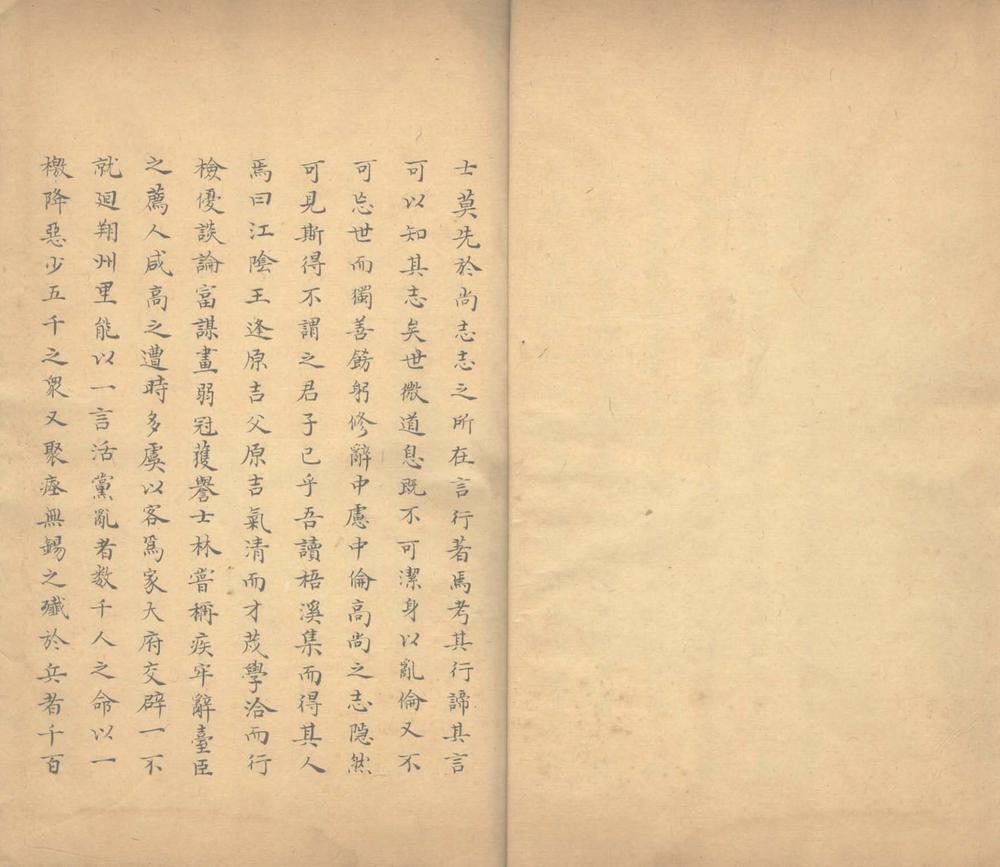 士莫先於尚志志之所在言行著焉考其行諦其言
可以知其志矣世微道息既不可潔身以亂倫又不
可忘世而獨善飭躬修辭中慮中倫高尚之志隠然
可見斯得不謂之君子已乎吾讀梧溪集而得其人
焉曰江隂王逢原吉父原吉氣清而才茂學洽而行
檢優談論富謀畫弱冠蔆譽士林嘗稱疾牢辭臺臣
之薦人咸高之遭時多虞以客爲家大府交辟一不
就迴翔州里能以一言活黨亂者数千人之命以一
檄降惡少五千之衆又聚瘞無錫之殱於兵者千百